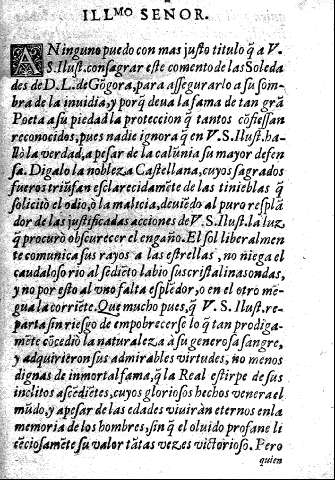 ILL.MO SEÑOR.
A Ninguno puedo con mas justo titulo q̃ a V.
S. Ilust. consagrar este comento de las Soleda
des de D. L. de Gõgora, para assegurarlo a su som-
bra de la inuidia, y porq̃ deua la fama de tan grã
Poeta a su piedad la proteccion q̃ tantos cõfiessan
reconocidos, pues nadie ignora q̃ en V. S. Ilust. ha-
llò la verdad, a pesar de la calũnia su mayor defen
sa. Digalo la nobleza Castellana, cuyos sagrados
fueros triũfan esclarecidamẽte de las tinieblas q̃
solicitò el odio, ò la malicia, deuiẽdo al puro resplã
dor de las justificadas acciones de V. S. Ilust. la luz
q̃ procurò obscurecer el engaño. El sol liberalmen
te comunica sus rayos a las estrellas, no niega el
caudaloso rio al sediẽto labio sus cristalinas ondas,
y no por esto al vno falta esplẽdor, o en el otro mẽ
gua la corriẽte. Que mucho pues, q̃ V. S. Ilust. re-
parta sin riesgo de empobrecerse lo q̃ tan prodiga-
mẽte cõcediò la naturaleza à su generosa sangre,
y adquirieron sus admirables virtudes, no menos
dignas de inmortal fama, q̃ la Real estirpe de sus
inclitos ascẽdiẽtes, cuyos gloriosos hechos venera el
mũdo, y apesar de las edades viuiràn eternos en la
memoria de los hombres, sin q̃ el oluido profane li
cẽciosamẽte su valor tãtas vezes victorioso. Pero
quien